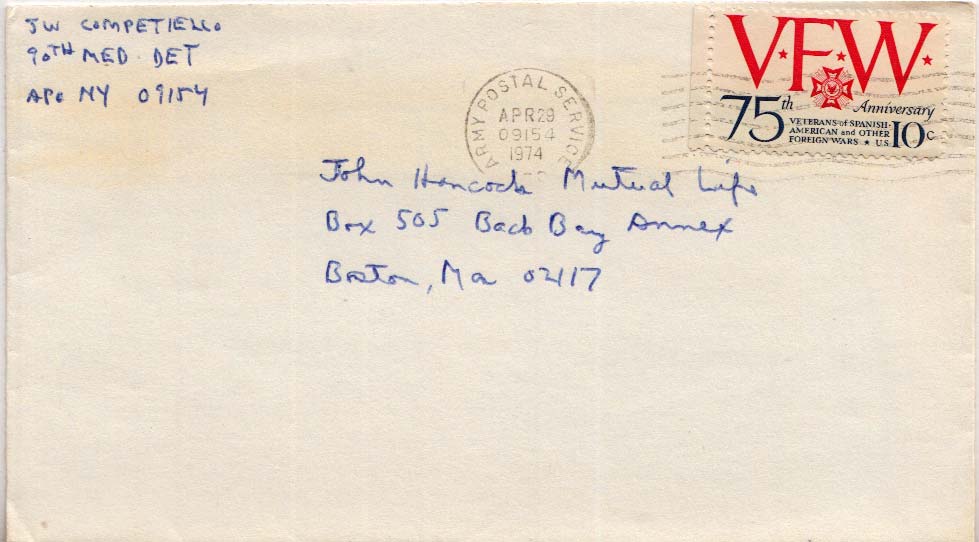 JW COMPETIELLO
90TH MED DET
APO NY 09154
ARMY POSTAL SERVICE
APR 29
09154
1974
V·F·W·
75th Anniversary
VETERANS of SPANISH-
AMERICAN and OTHER
FOREIGN WARS ★ U.S. 10c
John Hancock Mutual Life
Box 505 Back Bay Annex
Boston, Ma 02117